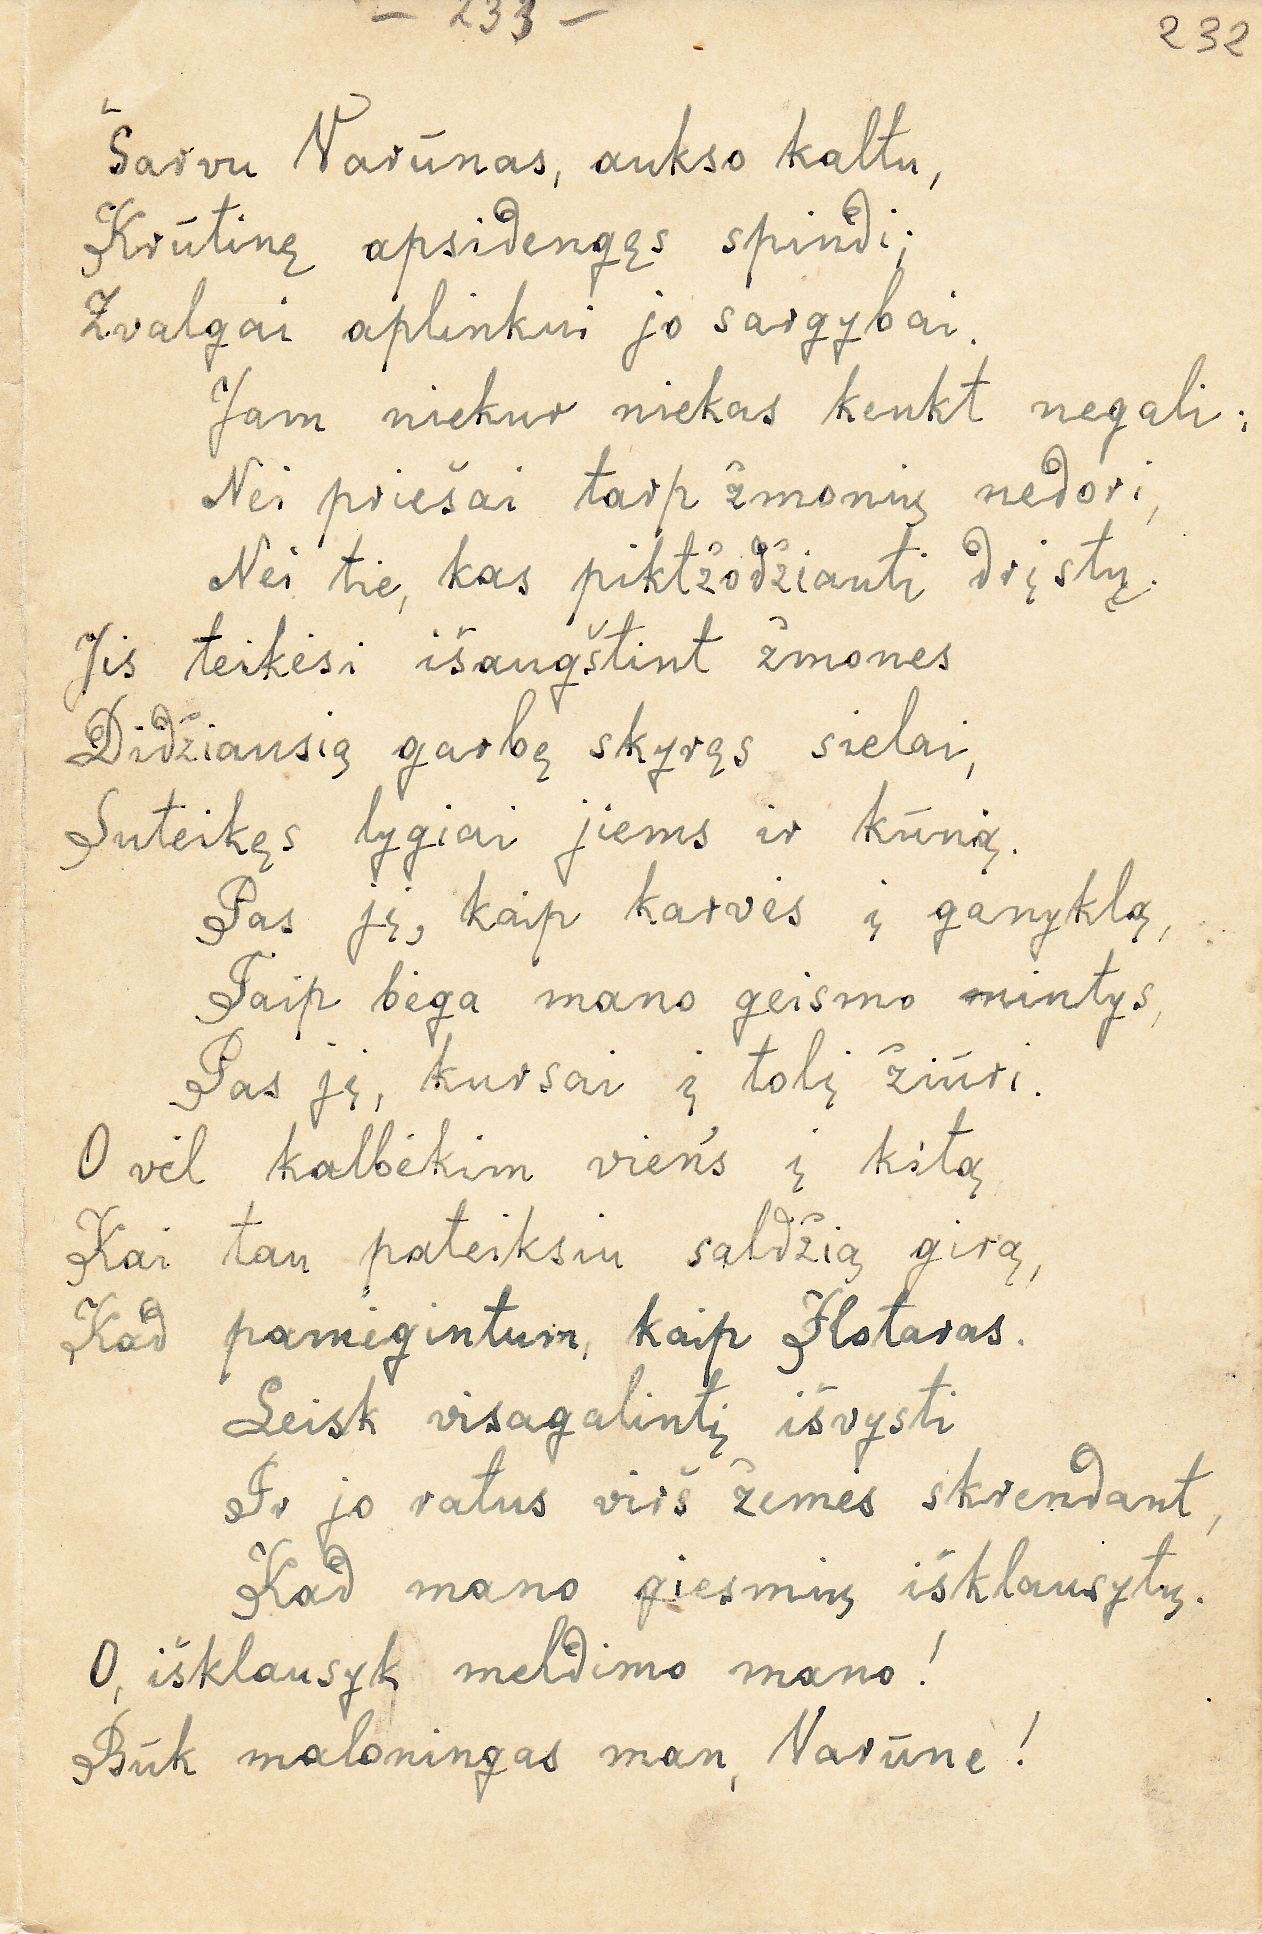 – 233 –
232
Šarvu Varūnas, aukso kaltu,
Krūtinę apsidengęs spindi;
Žvalgai aplinkui jo sargybai.
Jam niekur niekas kenkt negali;
Nei priešai tarp žmonių nedori,
Nei tie, kas piktžodžiauti drįstų.
Jis teikėsi išaugštint žmones
Didžiausią garbę skyręs sielai,
Suteikęs lygiai jiems ir kūną.
Pas jį, kaip karvės į ganyklą,
Taip bėga mano geismo mintys,
Pas jį, kursai į tolį žiūri.
O vėl kalbėkim viens į kitą
Kai tau pateiksiu saldžią girą,
Kad pamėgintum, kaip Hotaras.
Leisk visagalintį išvysti
Ir jo ratus virš žemės skrendant,
Kad mano giesmių išklausytų.
O, išklausyk meldimo mano!
Būk maloningas man, Varūne!